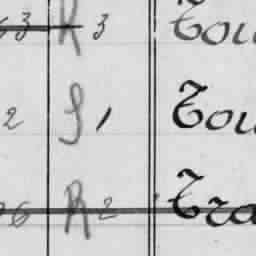 63 R 3 Tou
2 S 1 Tou
06 R 2 Tra